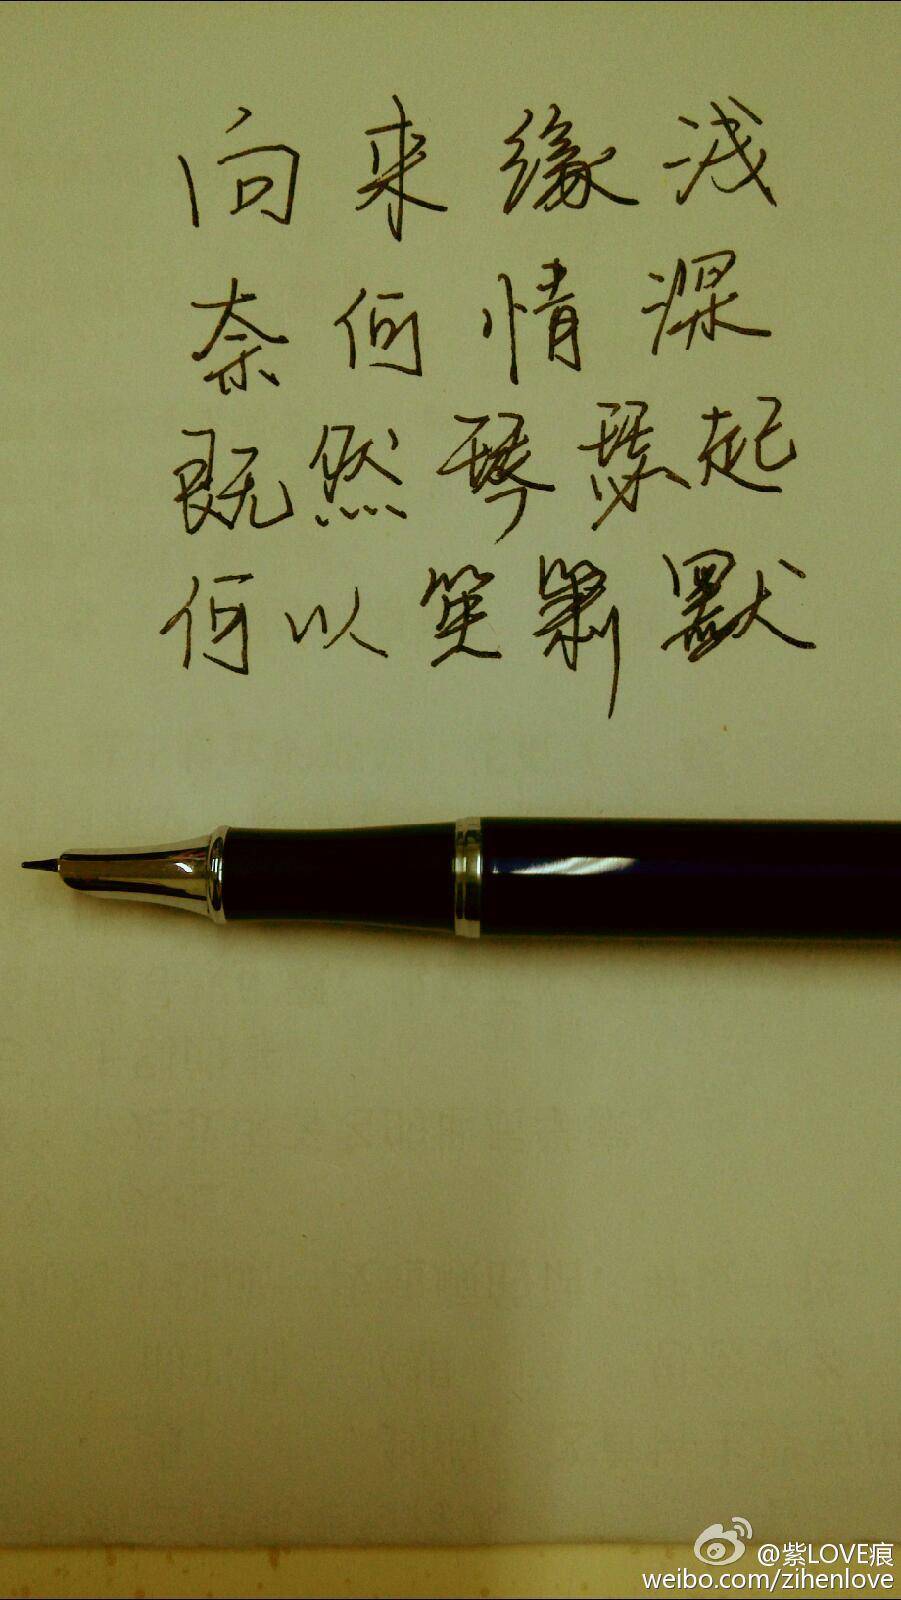 向来缘浅
奈何情深
既然琴瑟起
何以笙箫默
@紫LOVE痕
weibo.com/zihenlove